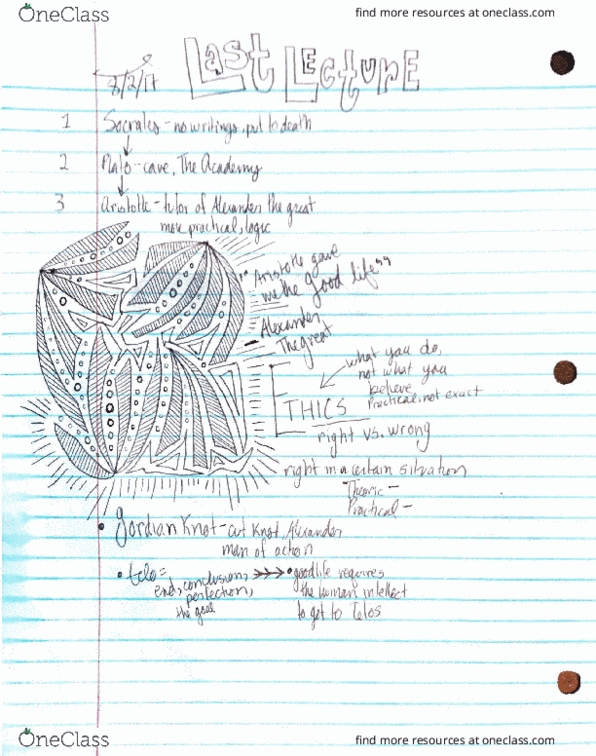 OneClass
find more resources at oneclass.com
Last Lecture
8/2/17
1 Socrates - no writings, put to death
2 Plato - cave, The Academy
3 Aristotle - tutor of Alexander the great
more practical, logic
"Aristotle gave
we the good life"
- Alexander
The great
ETHICS
what you do,
not what you
believe
Practical, not exact
right vs. wrong
right in a certain situation
- Theoric -
Practical -
• Gordian Knot - cut Knot, Alexander
man of action
• telos =
end, conclusion,
perfection,
the goal
• goodlife requires
the human intellect
to get to Telos
OneClass
find more resources at oneclass.com